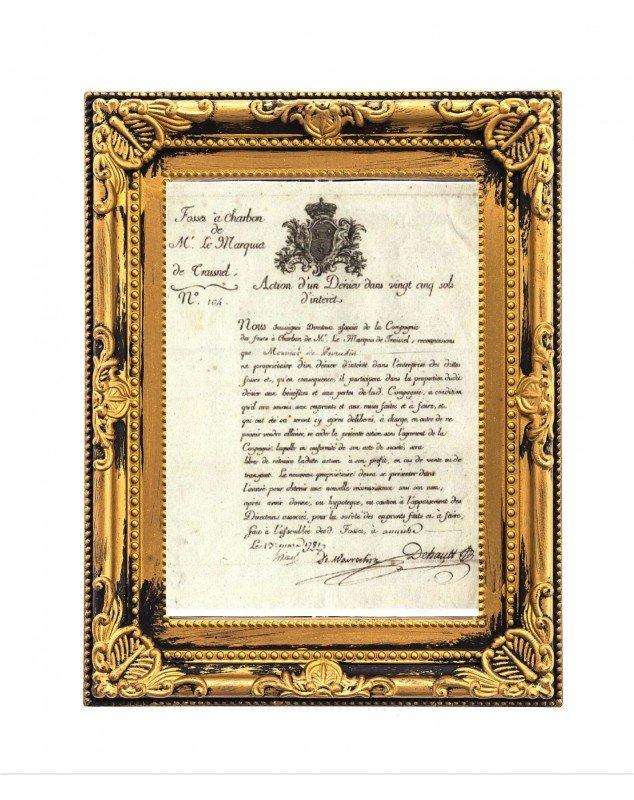 Fosses à Charbon
de
Mr. Le Marquis
de Traisnel.
No. 104.
Action d'un Dénier dans vingt cinq sols
d'interêt
Nous soussignés Directeurs associés de la Compagnie
des fosses à Charbon de Mr. Le Marquis de Traisnel, reconnoissons
que Monsieur de
est propriétaire d'un dénier d'interêt dans l'entreprise des dittes
fosses et, qu'en consequence, il participera dans la proportion dudit
dénier aux bénéfices et aux pertes de lad. Compagnie, à condition
qu'il sera soumis aux emprunts et aux mises faites et à faire, et
qui ont été ou seront cy après deliberés, à charge, en outre de ne
pouvoir vendre aliéner, ni céder la présente action sans l'agrément de la
Compagnie laquelle en conformité de son acte de société, sera
libre de retraire laditte action à son profit, en cas de vente ou de
transport. Le nouveau propriétaire devra se présenter dans
l'année pour obtenir une nouvelle reconnoissance sous son nom,
après avoir donné, en hypoteque, ou caution à l'appaisement des
Directeurs associés, pour la sûreté des emprunts faits ou à faire,
fait à l'assemblée desd. Fosses, à aniche
Le 13 mars 1781
De Wavrechin Dehault